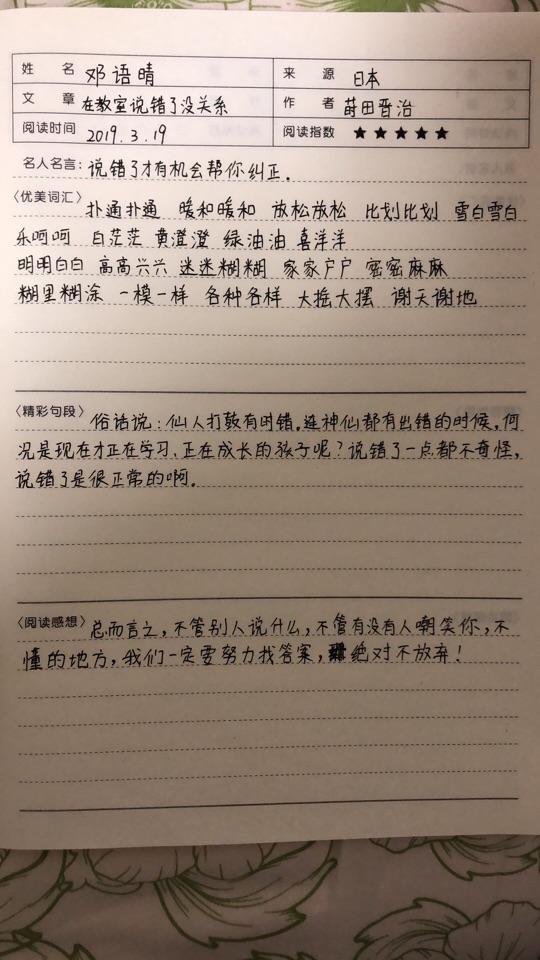 姓 名 邓语晴 来 源 日本
文 章 在教室说错了没关系 作 者 莳田晋治
阅读时间 2019.3.19 阅读指数 ★★★★★
名人名言：说错了才有机会帮你纠正.
〈优美词汇〉扑通扑通 暖和暖和 放松放松 比划比划 雪白雪白
乐呵呵 白茫茫 黄澄澄 绿油油 喜洋洋
明明白白 高高兴兴 迷迷糊糊 家家户户 密密麻麻
糊里糊涂 一模一样 各种各样 大摇大摆 谢天谢地
〈精彩句段〉俗话说:仙人打鼓有时错.连神仙都有出错的时候,何
况是现在才正在学习、正在成长的孩子呢?说错了一点都不奇怪,
说错了是很正常的啊.
〈阅读感想〉总而言之,不管别人说什么,不管有没有人嘲笑你,不
懂的地方,我们一定要努力找答案,绝对不放弃!